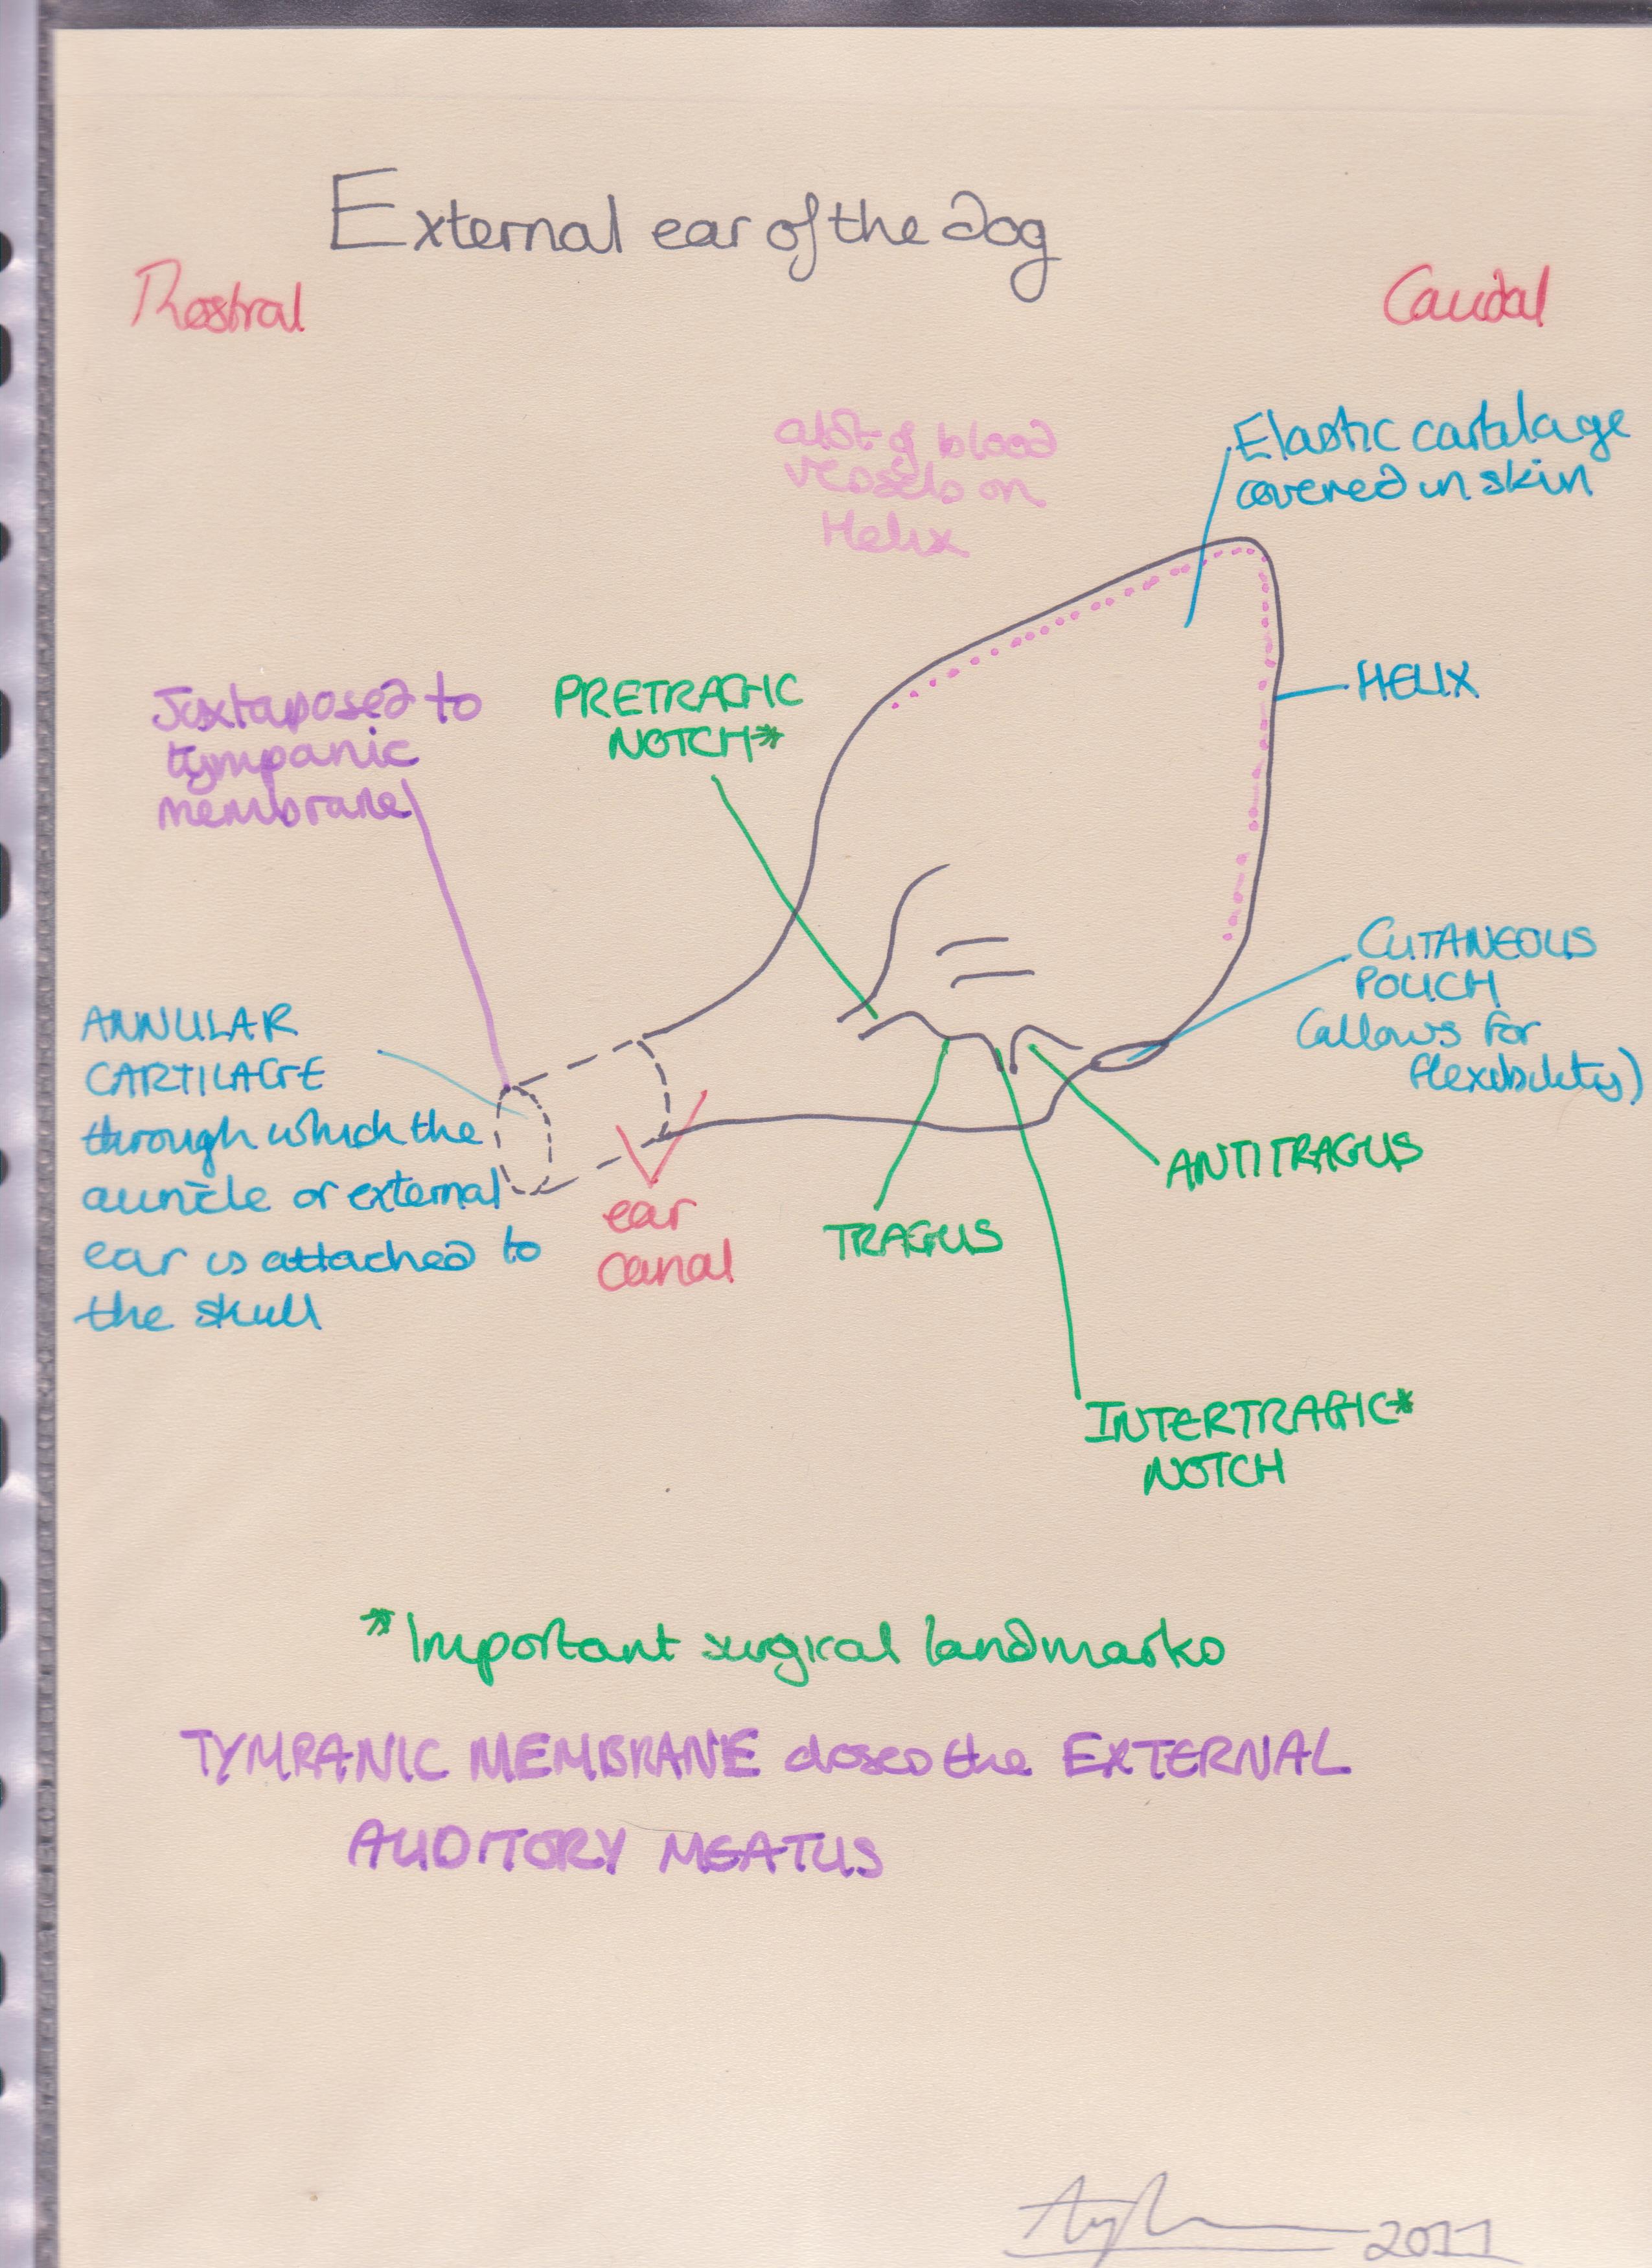 External ear of the dog
Rostral
Caudal
alot of blood
vessels on
Helix
Elastic cartilage
covered in skin
Juxtaposed to
tympanic
membrane
PRETRAGIC
NOTCH*
HELIX
CUTANEOUS
POUCH
(allows for
flexibility)
ANNULAR
CARTILAGE
through which the
auricle or external
ear is attached to
the skull
ear
canal
TRAGUS
ANTITRAGUS
INTERTRAGIC*
NOTCH
*Important surgical landmarks
TYMPANIC MEMBRANE closes the EXTERNAL
AUDITORY MEATUS
2011